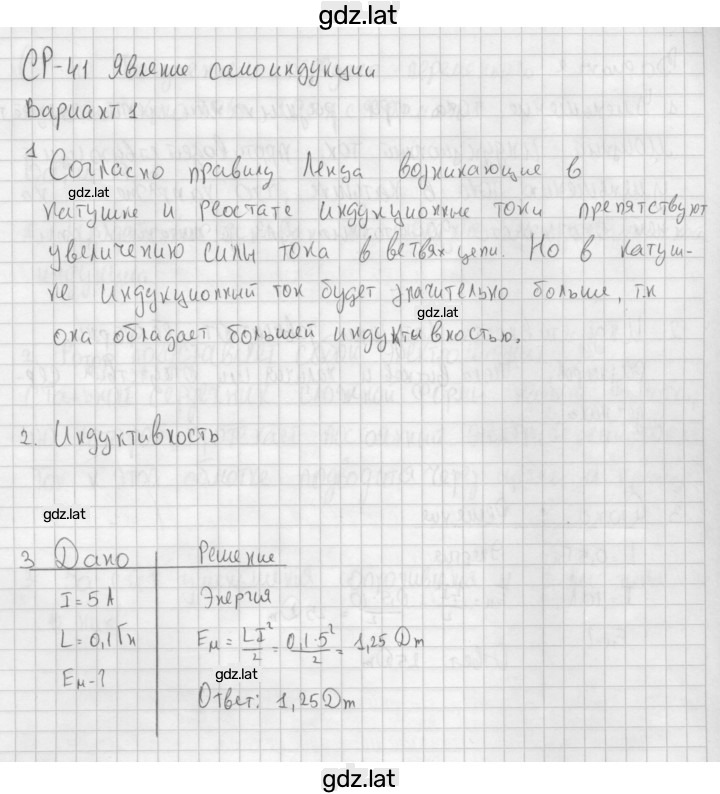 gdz.lat
СР-41 Явление самоиндукции
Вариант 1
1 Согласно правилу Ленца возникающие в
gdz.lat
катушке и реостате индукционные токи препятствуют
увеличению силы тока в ветвях цепи. Но в катуш-
ке индукционный ток будет значительно больше, т.к
gdz.lat
она обладает большей индуктивностью.
2. Индуктивность
gdz.lat
3 Дано Решение
I = 5 А Энергия
L = 0,1 Гн Eм = LI²/2 = 0,1·5²/2 = 1,25 Дж
Eм - ?
gdz.lat
Ответ: 1,25 Дж
gdz.lat